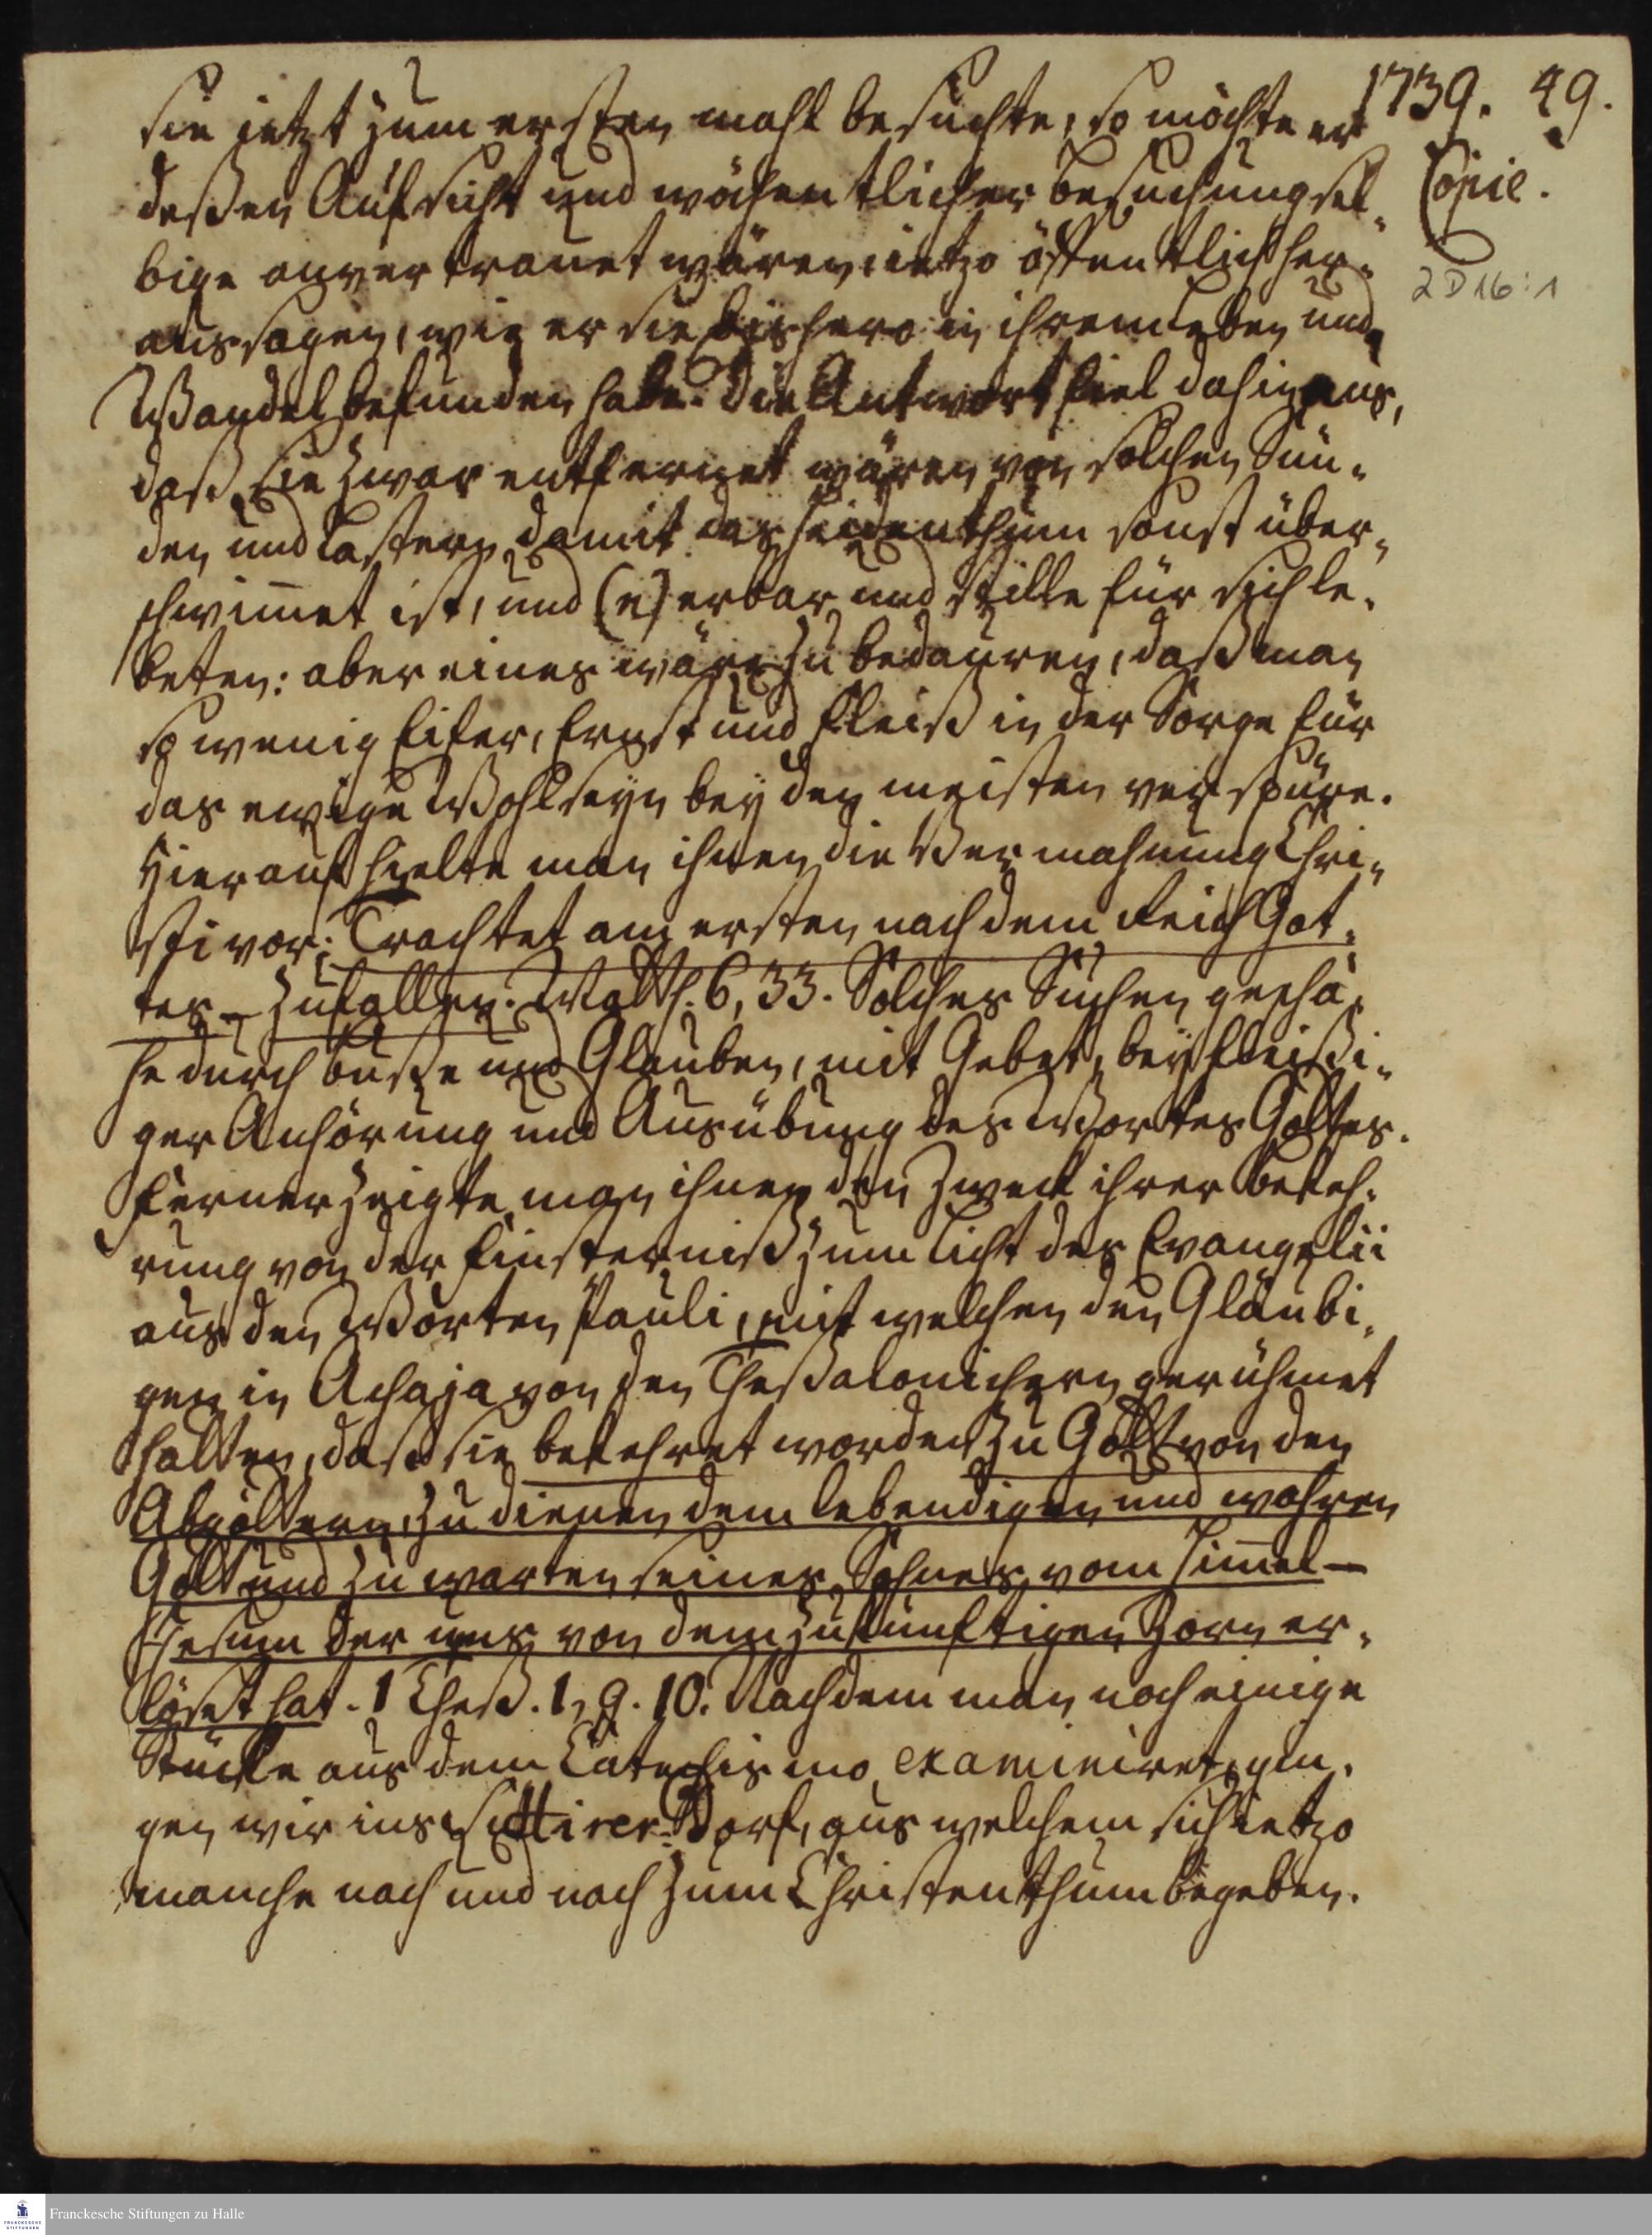 1739. 49.
Copie.
2 D 16 : 1
sie jetzt zum ersten mahl besuchte, so möchte er
deßen Aufsicht und wöchentlicher Besuchung sel-
bige anvertrauet wären, ietzo öffentlich her-
aus sagen, wie er sie bishero in ihrem Leben und
Wandel befunden habe. Die Antwort fiel dahin aus,
daß sie zwar entfernet wären von solchen Sün-
den und Lastern damit das Heidenthum sonst über-
schwim̅et ist, und (n) erbar und stille für sich le-
beten: aber eines wäre zu bedauren, daß man
so wenig Eifer, Ernst und Fleiß in der Sorge für
das ewige Wohlseyn bey den meisten verspüre.
Hierauf hielte man ihnen die Vermahnung Chri-
sti vor: Trachtet am ersten nach dem Reich Got-
tes – zufallen. Matth. 6, 33. Solches Suchen geschä-
he durch Buße und Glauben, mit Gebet, bey fleißi-
ger Anhörung und Ausübung des Wortes Gottes.
Ferner zeigte man ihnen den Zweck ihrer Bekeh-
rung von der Finsterniß zum Licht des Evangelii
aus den Worten Pauli, mit welchen den Gläubi-
gen in Achaja von den Theßalonichern gerühmet
hatten, daß sie bekehret worden zu Gott von den
Abgöttern, zu dienen dem lebendigen und wahren
Gott und zu warten seines Sohnes vom Him̅el –
Jesum der uns von dem zukünftigen Zorn er-
löset hat. 1 Theß. 1, 9. 10. Nachdem man noch einige
Stücke aus dem Catechismo examiniret, gin-
gen wir ins Dorf, aus welchem sich ietzo
manche nach und nach zum Christenthum begeben.
Franckesche Stiftungen zu Halle